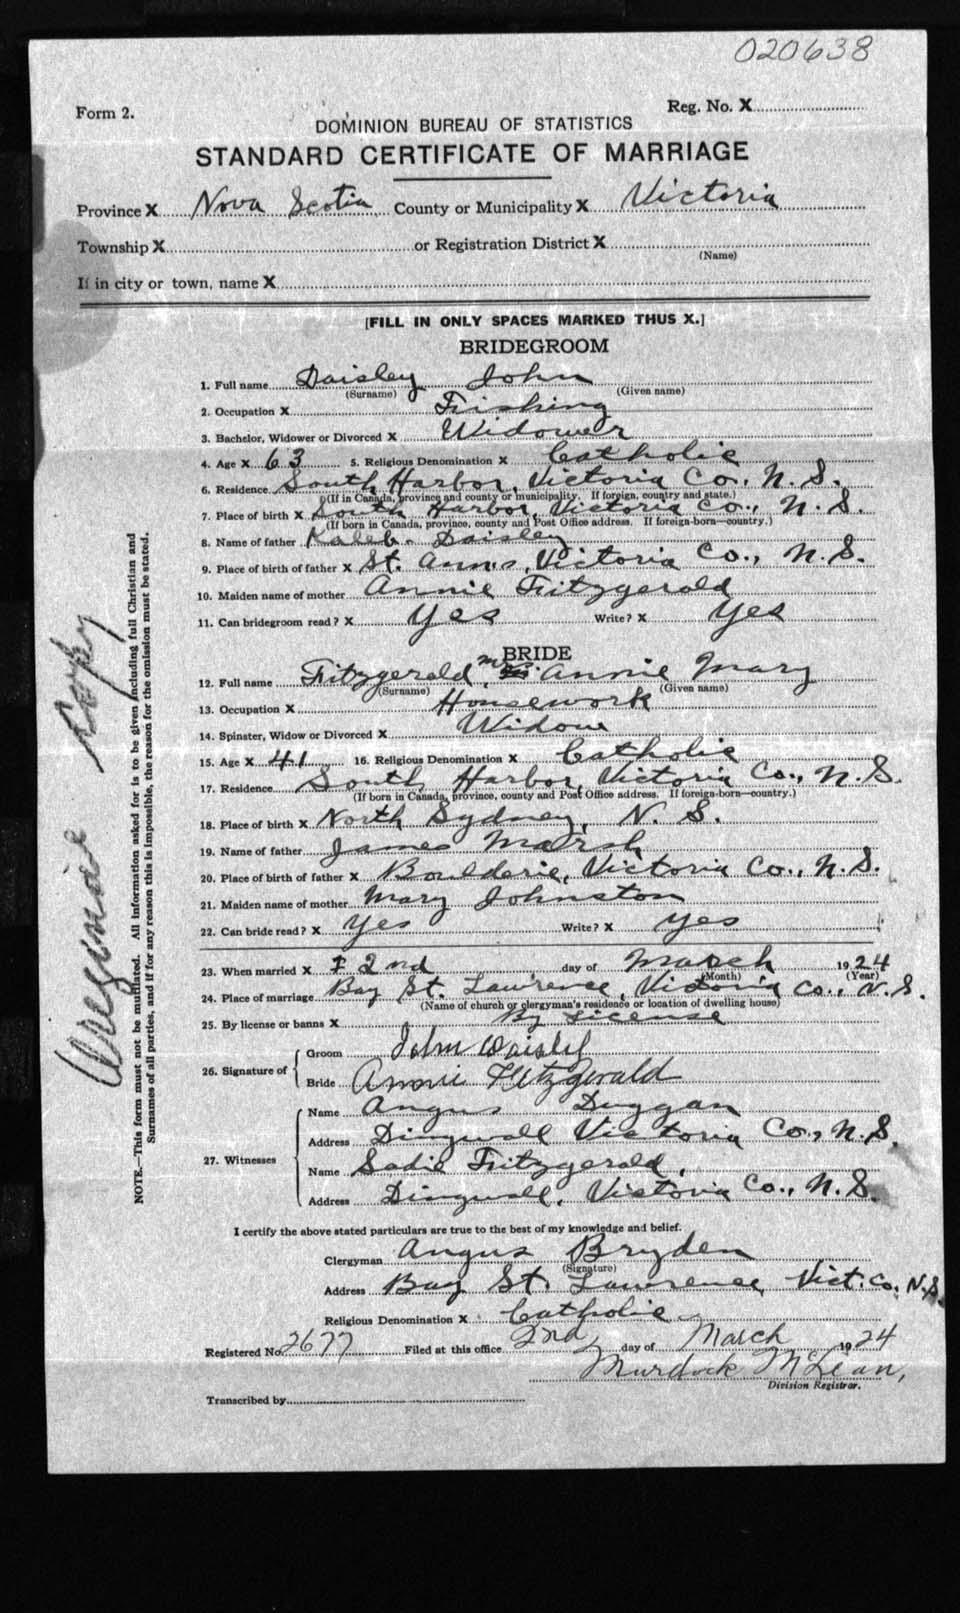 020638
Form 2. Reg. No. X
DOMINION BUREAU OF STATISTICS
STANDARD CERTIFICATE OF MARRIAGE
Province X Nova Scotia County or Municipality X Victoria
Township X or Registration District X
(Name)
If in city or town, name X
[FILL IN ONLY SPACES MARKED THUS X.]
BRIDEGROOM
1. Full name Daisley John
(Surname) (Given name)
2. Occupation X Fishing
3. Bachelor, Widower or Divorced X Widower
4. Age X 63 5. Religious Denomination X Catholic
6. Residence South Harbor, Victoria Co., N. S.
(If in Canada, province and county or municipality. If foreign, country and state.)
7. Place of birth X South Harbor, Victoria Co., N. S.
(If born in Canada, province, county and Post Office address. If foreign-born—country.)
8. Name of father Kaleb Daisley
9. Place of birth of father X St. Anns, Victoria Co., N. S.
10. Maiden name of mother Annie Fitzgerald
11. Can bridegroom read? X Yes Write? X Yes
BRIDE
12. Full name Fitzgerald, Mrs. Annie Mary
(Surname) (Given name)
13. Occupation X Housework
14. Spinster, Widow or Divorced X Widow
15. Age X 41 16. Religious Denomination X Catholic
17. Residence South Harbor, Victoria Co., N. S.
(If born in Canada, province, county and Post Office address. If foreign-born—country.)
18. Place of birth X North Sydney, N. S.
19. Name of father James Marsh
20. Place of birth of father X Boulderie, Victoria Co., N. S.
21. Maiden name of mother Mary Johnston
22. Can bride read? X Yes Write? X Yes
23. When married X 2nd day of March 1924
(Month) (Year)
24. Place of marriage Bay St. Lawrence, Victoria Co., N. S.
(Name of church or clergyman's residence or location of dwelling house)
25. By license or banns X By License
26. Signature of
Groom John Daisley
Bride Annie Fitzgerald
27. Witnesses
Name Angus Duggan
Address Dingwall Victoria Co., N. S.
Name Sadie Fitzgerald,
Address Dingwall, Victoria Co., N. S.
I certify the above stated particulars are true to the best of my knowledge and belief.
Clergyman Angus Bryden
(Signature)
Address Bay St. Lawrence, Vict. Co. N. S.
Religious Denomination X Catholic
Registered No 2677 Filed at this office 2nd day of March 1924
Murdock McLean,
Division Registrar.
Transcribed by
NOTE.—This form must not be mutilated. All information asked for is to be given including full Christian and
Surnames of all parties, and if for any reason this is impossible, the reason for the omission must be stated.
Original Copy